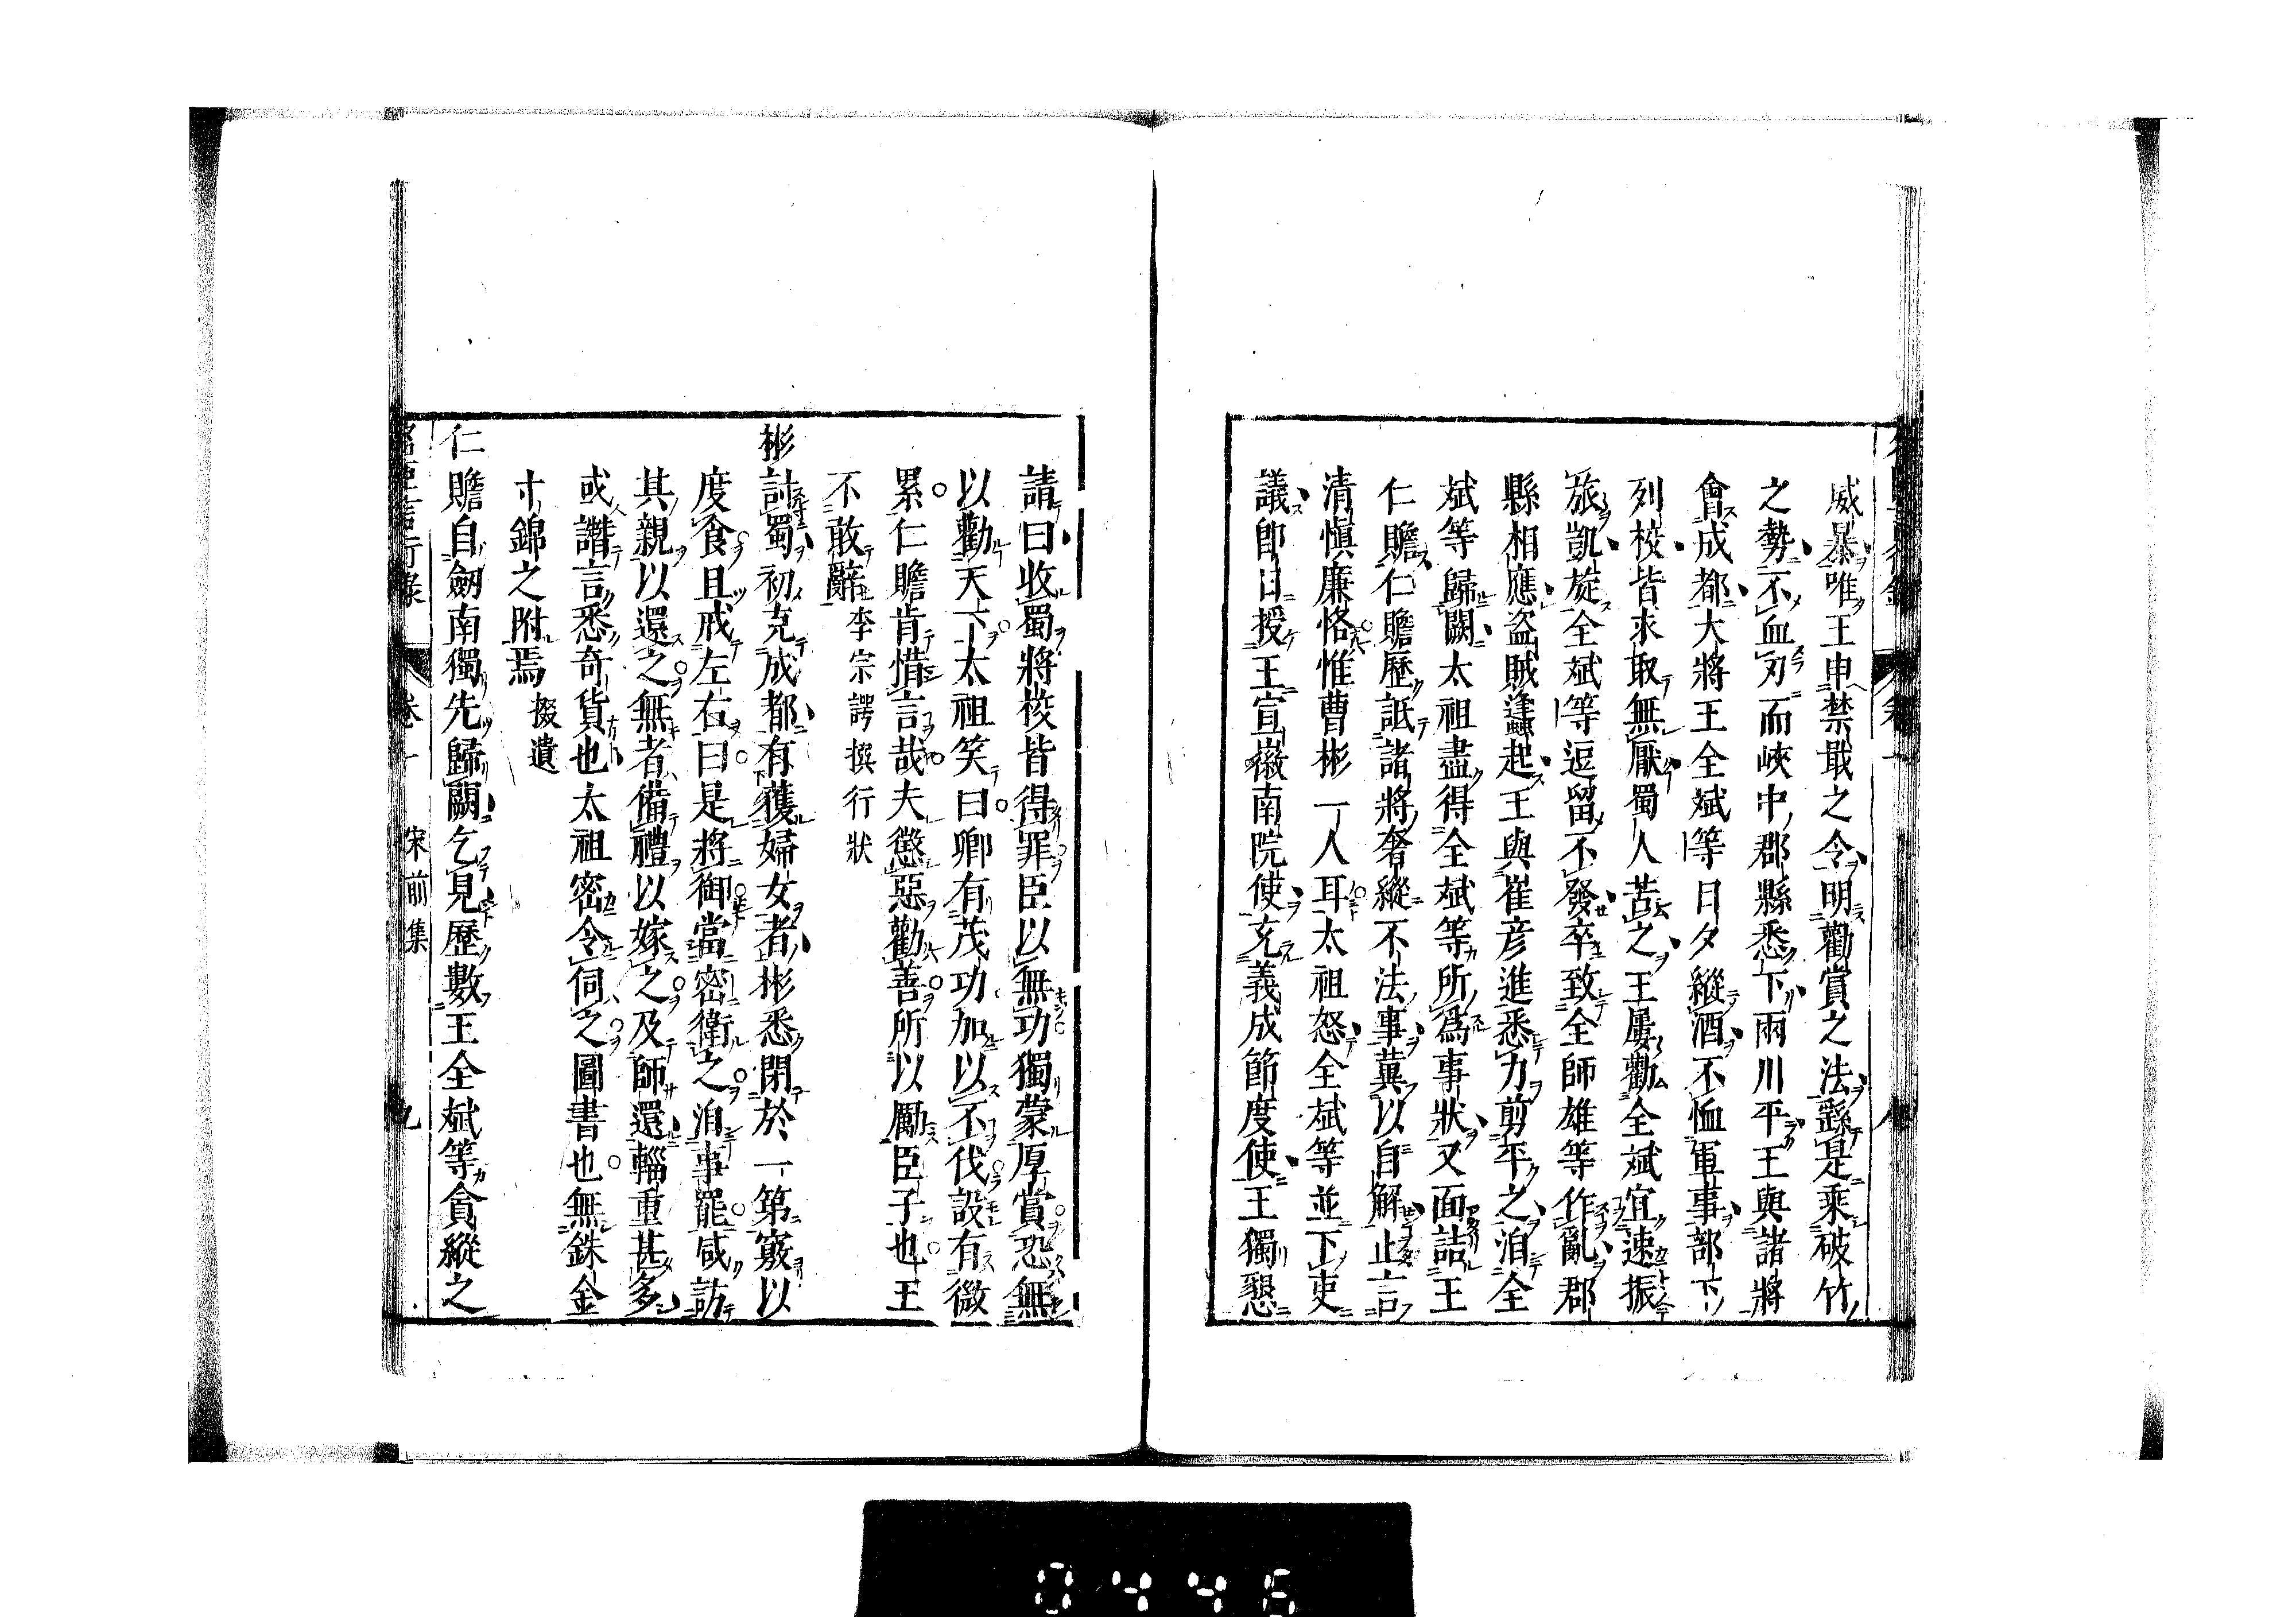 威暴唯王申禁戢之令明勸賞之法繇是乘破竹
之勢不血刃而峽中郡縣悉下兩川平王與諸將
會成都大將王全斌等日夕縱酒不恤軍事部下
列校皆求取無厭蜀人苦之王屢勸全斌宜速振
旅凱旋全斌等逗留不發卒致全師雄等作亂郡
縣相應盜賊蜂起王與崔彦進悉力剪平之洎全
斌等歸闕太祖盡得全斌等所爲事狀又面詰王
仁贍仁贍歷詆諸將奢縱不法事冀以自解止言
清愼廉恪惟曹彬一人耳太祖怒全斌等並下吏
議即日授王宣徽南院使充義成節度使王獨懇
請曰收蜀將校皆得罪臣以無功獨蒙厚賞恐無
以勸天下太祖笑曰卿有茂功加以不伐設有微
累仁贍肯惜言哉夫懲惡勸善所以厲臣子也王
不敢辭李宗諤撰行狀
彬討蜀初克成都有獲婦女者彬悉閉於一第竅以
度食且戒左右曰是將御當密衛之洎事罷咸訪
其親以還之無者備禮以嫁之及師還輜重甚多
或譖言悉奇貨也太祖密令伺之圖書也無銖金
寸錦之附焉掇遺
仁贍自劒南獨先歸闕乞見歷數王全斌等貪縱之
名臣言行錄 卷一 宋前集 九
0446